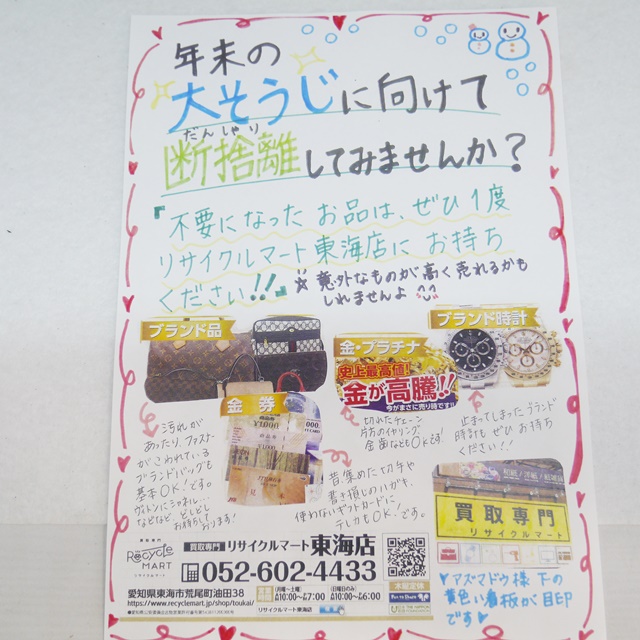 年末の
大そうじに向けて
だんしゃり
断捨離してみませんか?
『不要になった お品は、ぜひ1度
リサイクルマート東海店に お持ち
ください!!』
☆意外なものが高く売れるかも
しれませんよ
ブランド品
金・プラチナ
ブランド時計
史上最高値!
金が高騰!!
今がまさに売り時です!!
金券
汚れが
あったり、ファスナー
がこわれている
ブランドバッグも
基本OK!です。
ヴィトンにシャネル…
などなど、どしどし
お持ちして
おります!
切れたチェーン
片方のイヤリング
金歯などもOKです!
止まってしまったブランド
時計もぜひお持ち
ください!!
昔集めた切手や
書き損じのハガキ、
使わないギフトカードに
テレカもOK!です。
買取専門
リサイクルマート
買取専門
Recycle
MART
リサイクルマート
買取専門 リサイクルマート東海店
052-602-4433
愛知県東海市荒尾町油田38
https://www.recyclemart.jp/shop/toukai/
(月曜~土曜)
AM10:00~PM7:00
(日曜日のみ)
AM10:00~PM6:00
リサイクルマート東海店
アズマドウ様 下の
黄色い看板が目印
です